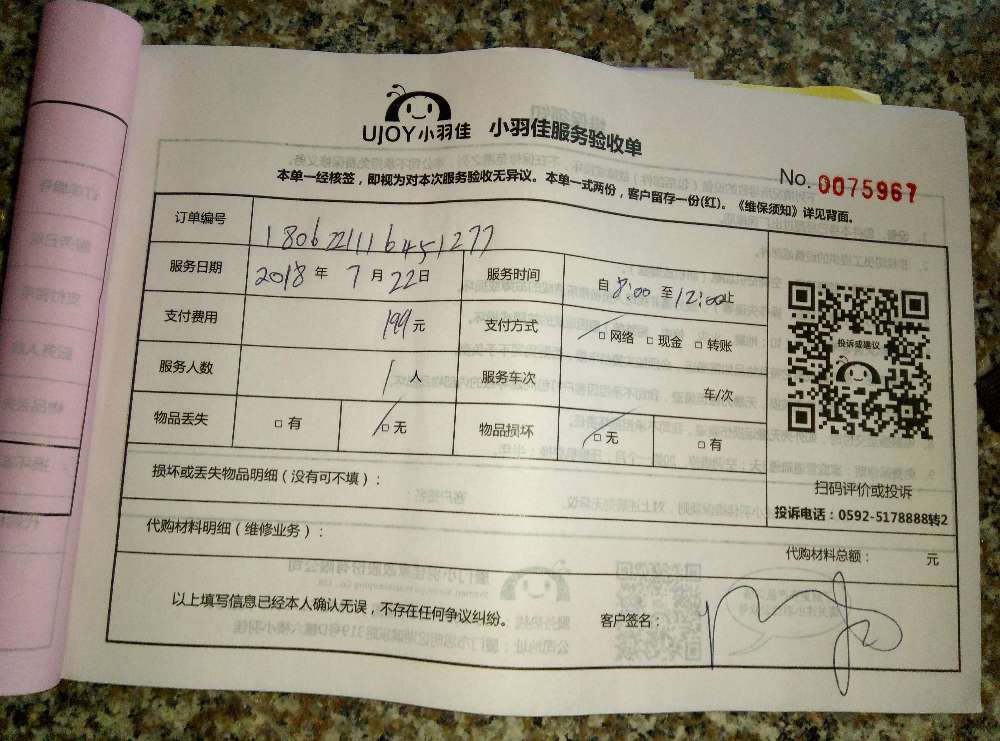 UJOY小羽佳 小羽佳服务验收单
No. 0075967
本单一经核签，即视为对本次服务验收无异议。本单一式两份，客户留存一份(红)。《维保须知》详见背面。
订单编号 1806221116451277
服务日期 2018 年 7 月 22 日 服务时间 自 8:00 至 12:00 止
支付费用 199 元 支付方式 □ 网络 □ 现金 □ 转账
服务人数 1 人 服务车次 车/次
物品丢失 □ 有 □ 无 物品损坏 □ 无 □ 有
投诉或建议
扫码评价或投诉
投诉电话：0592-5178888转2
损坏或丢失物品明细（没有可不填）：
代购材料明细（维修业务）：
代购材料总额： 元
以上填写信息已经本人确认无误，不存在任何争议纠纷。 客户签名：